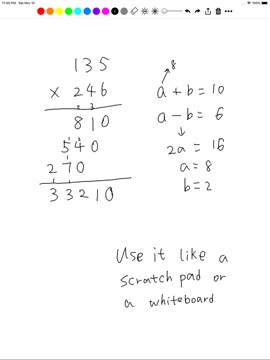 11:00 PM Sat Nov 16
135
× 246
2 3
810
1 2
540
1
270
1 1
33210
8
a + b = 10
a - b = 6
2a = 16
a = 8
b = 2
Use it like a
scratch pad or
a whiteboard